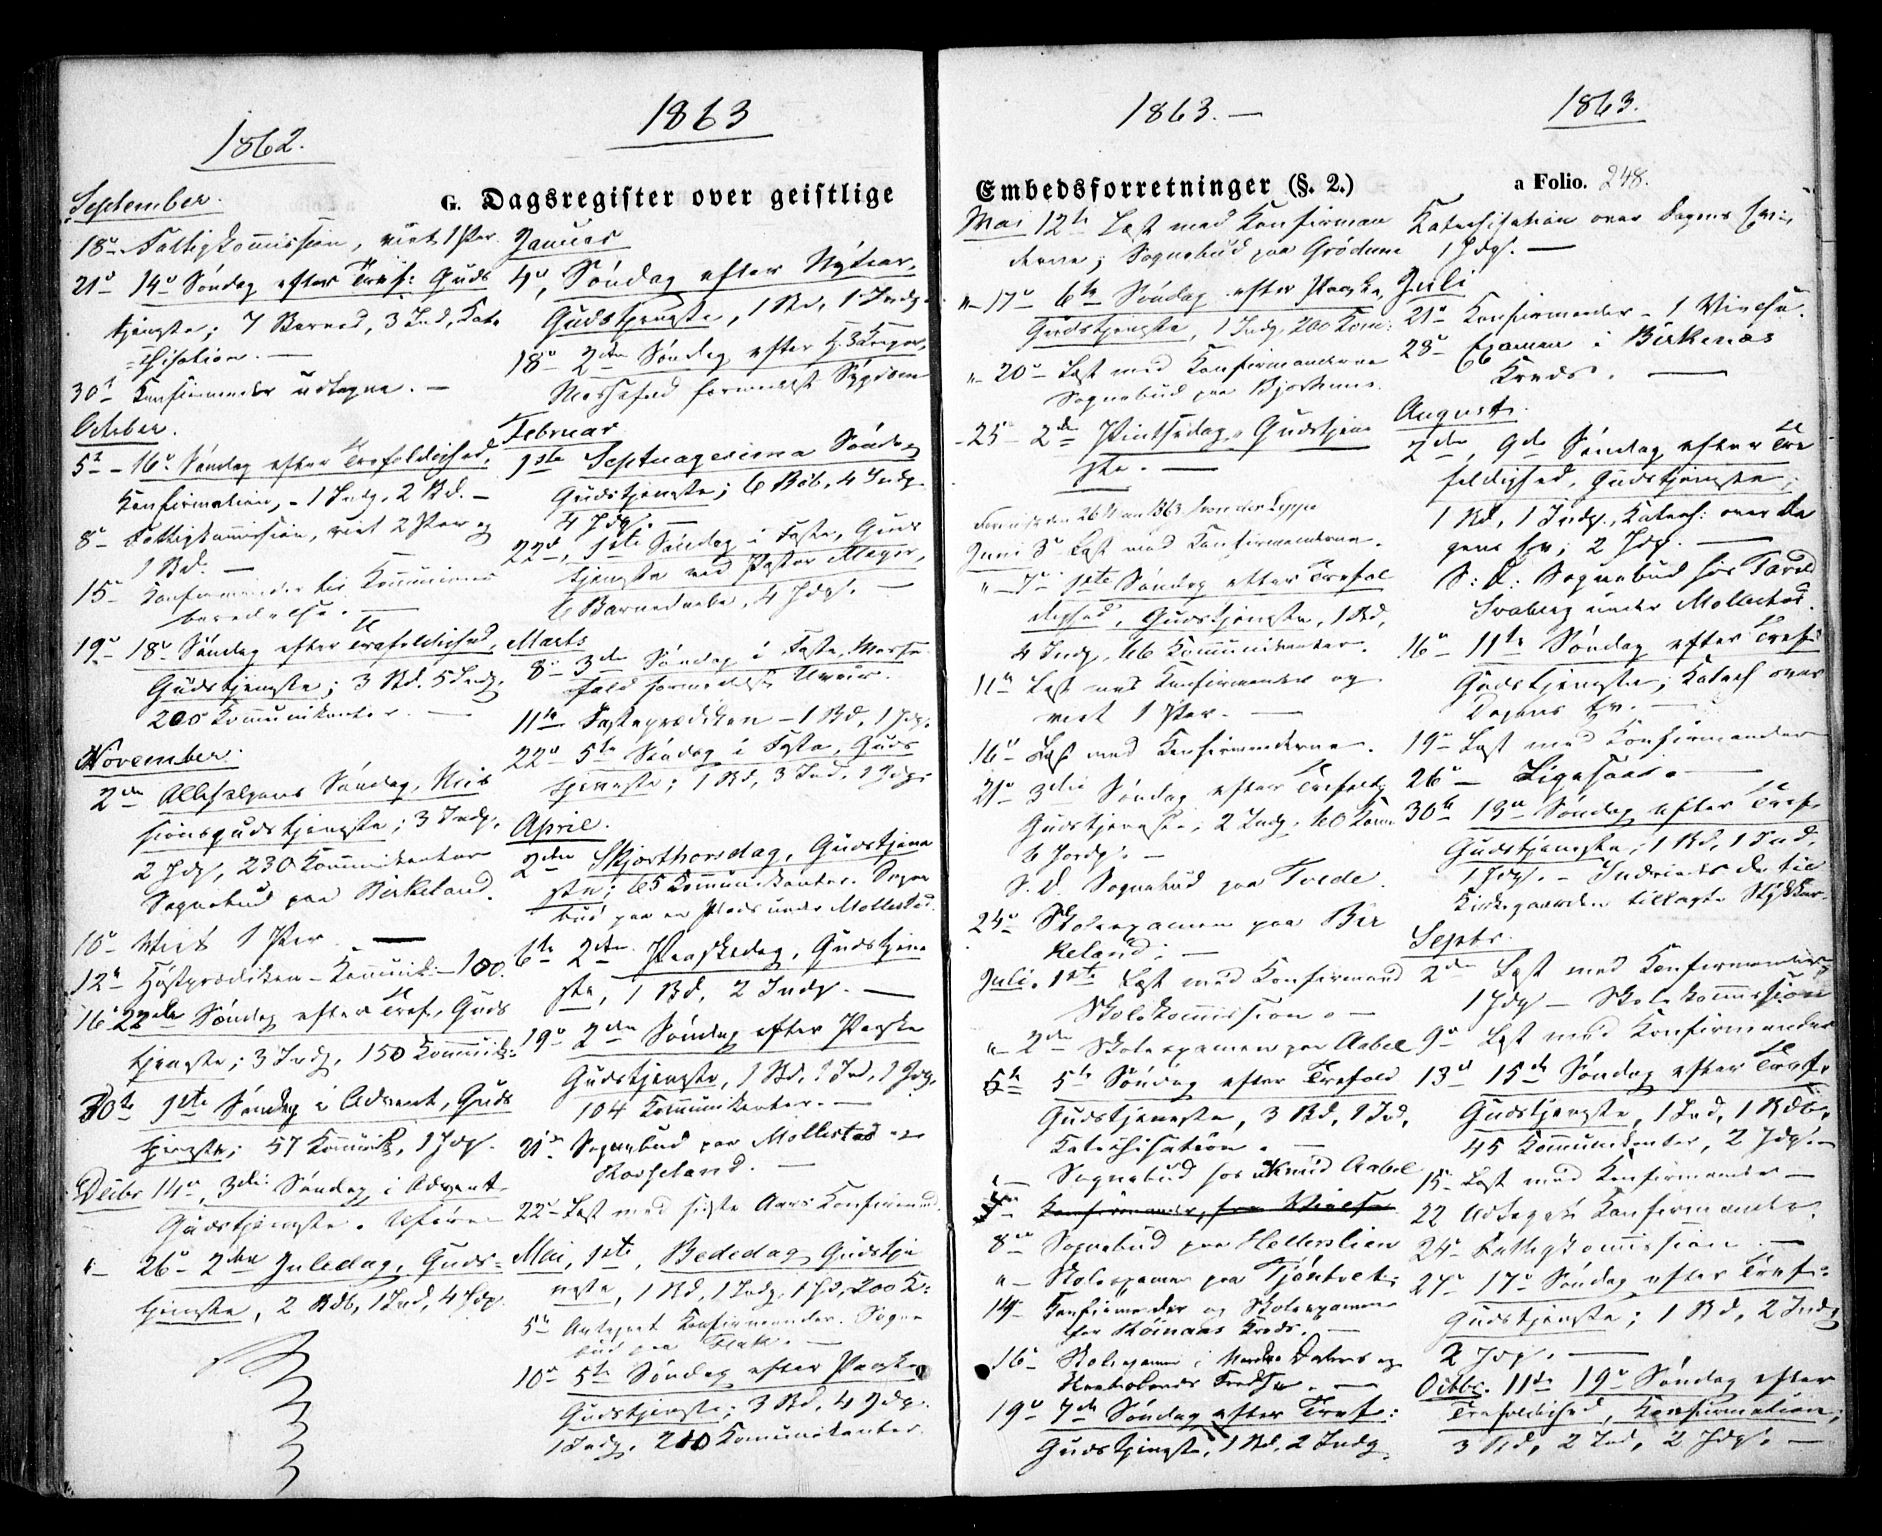 1862.
1863
G. Dagsregister over geistlige
September.
18de Fattigkommission, viet 1 Par.
21de 14de Søndag efter Tref: Guds
tjeneste; 7 Barned, 3 Ind, Kate
chisation. —
30te Konfirmander udtagne. —
October.
5te – 16de Søndag efter Trefoldighed,
Konfirmation, – 1 Indg, 2 Bd. –
8de Fattigkommission, viet 2 Par og
1 Bd. —
15de Konfirmander til Kommunions
beredelse. —
19de 18de Søndag efter Trefoldighed,
Gudstjeneste; 3 Bd. 5 Indg,
200 Kommunikanter. —
November.
2den Allehelgens Søndag,
sionsgudstjeneste; 3 Indg,
2 Jdp, 230 Kommunikanter
Sognebud paa Birkeland.
10de Viet 1 Par. —
12te Høstprædiken – Kommunik: – 100.
16de 22de Søndag efter Tref, Guds
tjeneste; 3 Indg, 150 Kommunik:
30te 1ste Søndag i Advent, Guds
tjeneste; 57 Kommunik, 1 Jdp.
Decbr 14de, 3die Søndag i Advent
Gudstjeneste.
" – 26de 2den Juledag, Guds=
tjeneste, 2 Bdb, 1 Ind, 4 Jdp.
Januar
4de, Søndag efter Nytaar,
Gudstjeneste, 1 Bd, 1 Indg.
18de 2den Søndag efter H. 3 Konger,
Messefald formedelst Sygdom
Februar
1ste Septuagesima Søndag
Gudstjeneste; 6 Bdb, 4 Indg.
4 Jdp. —
22de, 1ste Søndag i Faste, Guds
tjeneste ved Pastor Meyer,
6 Barnedaabe, 4 Jdp. —
Marts
8de 3die Søndag i Faste, Messe
fald formedelst Uveir.
11te Fasteprædiken – 1 Bd, 1 Jdp.
22de 5te Søndag i Faste, Guds
tjeneste; 1 Bd, 3 Ind, 1 Jdp.
April.
2den Skjærthorsdag, Gudstjene
ste; 65 Kommunikanter. Sogne
bud paa en Plads under Mollestad.
6te 2den Paaskedag, Gudstjene
ste, 1 Bd, 2 Indg. —
19de 2den Søndag efter Paaske
Gudstjeneste, 1 Bd, 1 Ind, 1 Jdp,
104 Kommunikanter. —
21de Sognebud paa Mollestad og
Rosseland. —
22de Læst med sidste Aars Konfirmand.
Mai, 1ste, Bededag Gudstje
neste, 1 Bd, 1 Indg, 1 Jd, 200 K:
5te Antegnet Konfirmander. Sogne
bud paa Flak. —
10de 5te Søndag efter Paaske
Gudstjeneste; 3 Bd, 4 Jdp.
1 Indg, 200 Kommunikanter.
1863. —
1863.
Embedsforretninger (§. 2.)
a Folio. 248.
Mai 12te Læst med Konfirman
derne; Sognebud paa Grødum
" – 17de 6te Søndag efter Paaske,
Gudstjeneste, 1 Indg, 200 Kom:
" – 20de Læst med Konfirmanderne
Sognebud paa
– 25de 2den Pintsedag, Gudstjene
ste. —
26
Juni 3de Læst med Konfirmanderne.
" – 7de 1ste Søndag efter Trefol
dighed, Gudstjeneste, 1 Bd,
4 Indg, 66 Kommunikanter.
11te Læst med Konfirmander og
viet 1 Par. —
16de Læst med Konfirmanderne.
21de 3die Søndag efter Trefoldg
Gudstjeneste, 2 Indg, 60 Kom
6 Jordp. —
S. D. Sognebud paa Tvede.
24de Skoleexamen paa Bir
keland. —
Juli. 1ste Læst med Konfirmand
Skolekommission. —
" – 2den Skoleexamen paa Aabel
5te 5te Søndag efter Trefold
Gudstjeneste, 3 Bd, 1 Ind,
Katechisation. —
" – Sognebud hos Knud Aabel
Konfirmander, fra Vielse
8de Sognebud paa Hellerslien
" – Skoleexamen paa Tjøntvet.
14de Konfirmander og Skoleexamen
for Röinaas Kreds. —
16de Skoleexamen i Nordre
Kredse. —
19de 7de Søndag efter Tref:
Gudstjeneste, 1 Bd, 2 Indg
Katechisation over Dagens Evan,
1 Jdp. —
Juli
21de Konfirmander – 1 Vielse.
28de Examen i Birkenæs
Kreds. —
August.
2den, 9de Søndag efter Tre
foldighed, Gudstjeneste;
1 Bd, 1 Indg., Katech: over Da
gens Ev; 2 Jdp. —
S: D: Sognebud hos Tarald
Svaberg under Mollestad.
16de 11te Søndag efter Tref:
Gudstjeneste; Katech over
Dagens Ev. —
19de Læst med Konfirmander
26de – Ligefaas. —
30te 13de Søndag efter Tref.
Gudstjeneste, 1 Bd, 1 Ind,
1 Jdp. – Indviedes de til
Kirkegaarden tillagte Stykker.
Septbr.
2den Læst med Konfirmander
1 Jdp – Skolekommission
9de Læst med Konfirmander
13de 15de Søndag efter Tref.
Gudstjeneste, 1 Ind, 1 Bdb,
45 Kommunikanter, 2 Jdp. —
15de Læst med Konfirmander —
22 Udtagne Konfirmander.
24de Fattigkommission. —
27de 17de Søndag efter Tref:
Gudstjeneste; 1 Bd, 2 Indg
2 Jdp. —
Octbr. 11te 19de Søndag efter
Trefoldighed, Konfirmation;
3 Bd, 2 Ind, 2 Jdp. —